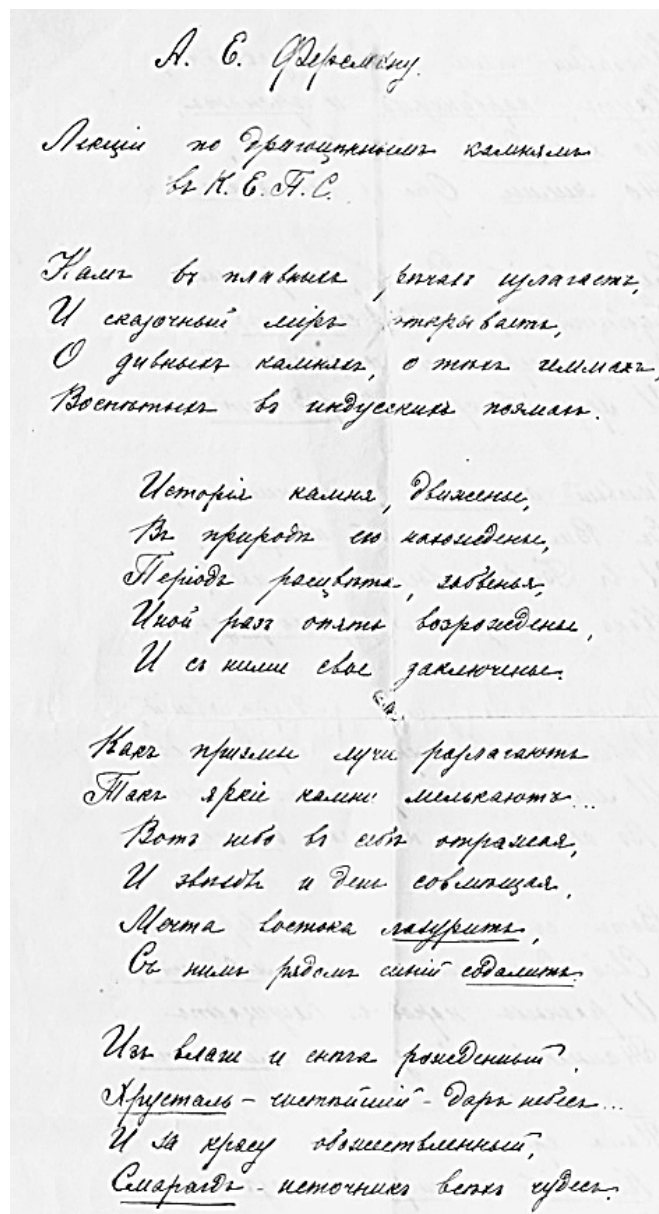 А. Е. Ферсману.
Лекціи по драгоцѣннымъ камнямъ
въ К. Е. П. С.
Намъ въ плавныхъ рѣчахъ излагаетъ,
И сказочный міръ открываетъ,
О дивныхъ камняхъ, о тѣхъ геммахъ,
Воспѣтыхъ въ индусскихъ поэмахъ.
Исторія камня, движенье,
Въ природѣ его нахожденье,
Періодъ расцвѣта, забвенья,
Иной разъ опять возрожденье,
И съ ними свое заключенье.
Какъ призмы лучи разлагаютъ
Такъ яркіе камни мелькаютъ...
Вотъ небо въ себѣ отражая,
И звѣзды и день совмѣщая,
Мечта востока лазуритъ,
Съ нимъ рядомъ синій содалитъ.
Изъ влаги и снѣга рожденный,
Хрусталь – чистѣйшій – даръ небесъ...
И за красу обожествленный,
Смарагдъ – источникъ всѣхъ чудесъ.